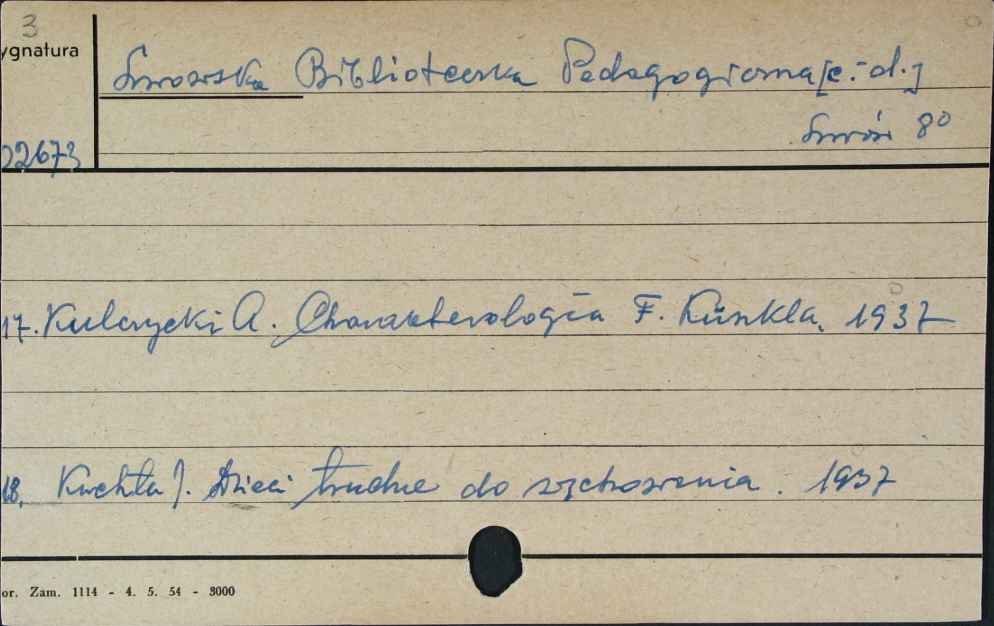 3
ygnatura
Lwowska Biblioteczka Pedagogiczna [c.d.]
Lwów 8°
22673
17. Kulczycki A. Charakterologia F. Künkla. 1937
18. Kuchta J. Dzieci trudne do wychowania. 1937
or. Zam. 1114 - 4. 5. 54 - 3000